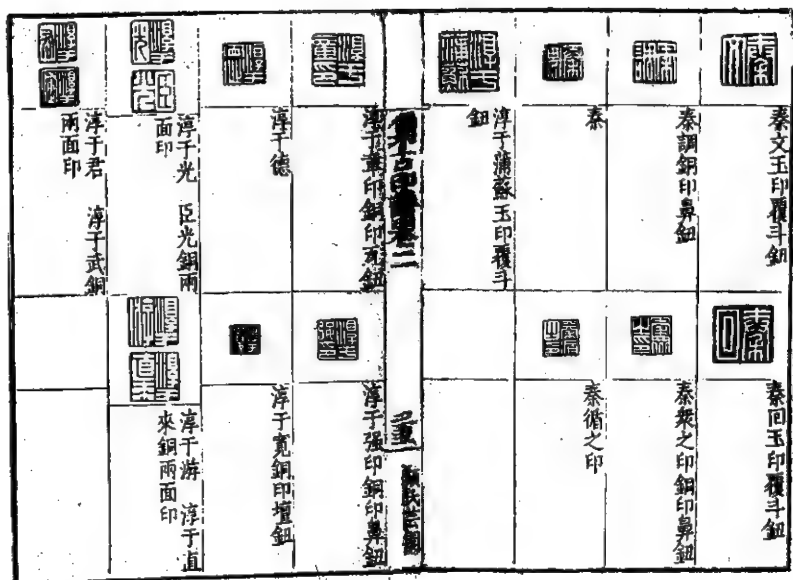 秦文玉印覆斗鈕
秦回玉印覆斗鈕
秦調銅印鼻鈕
秦衆之印銅印鼻鈕
秦
秦循之印
淳于蒲蘇玉印覆斗
鈕
印
卷二
淳于
印銅印瓦鈕
淳于强印銅印鼻鈕
淳于德
淳于寬銅印壇鈕
淳于光 臣光銅兩
面印
淳于游 淳于直
來銅兩面印
淳于君 淳于武銅
兩面印